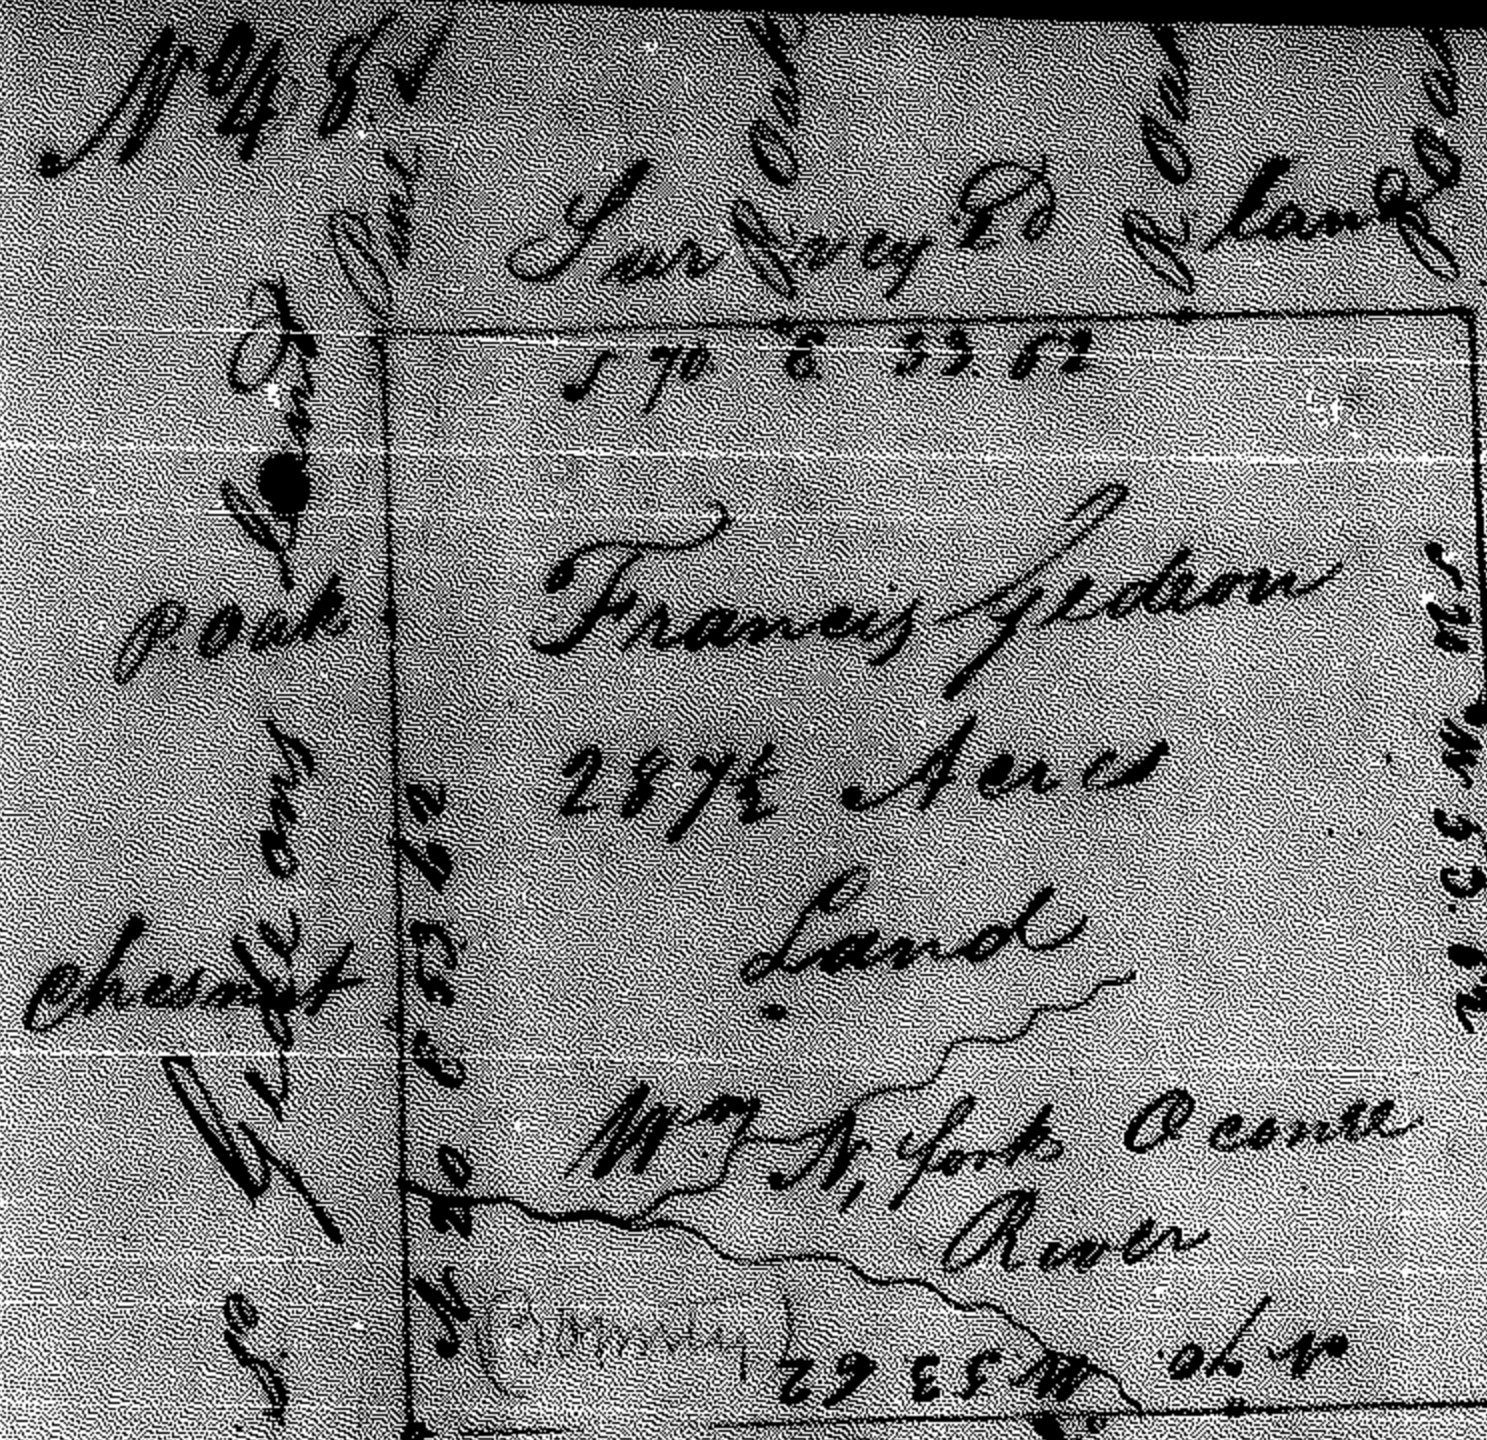 No 48
Pine
oak
oak
oak
Survey'd Land
S 70 E 53.62
Land
P. Oak
Francis Gedeon
287½ Acres
Land
Chesnut
N 20 E 53 62
S 20 W 53.62
Wm N, York Oconee
River
N 70 W 53 62